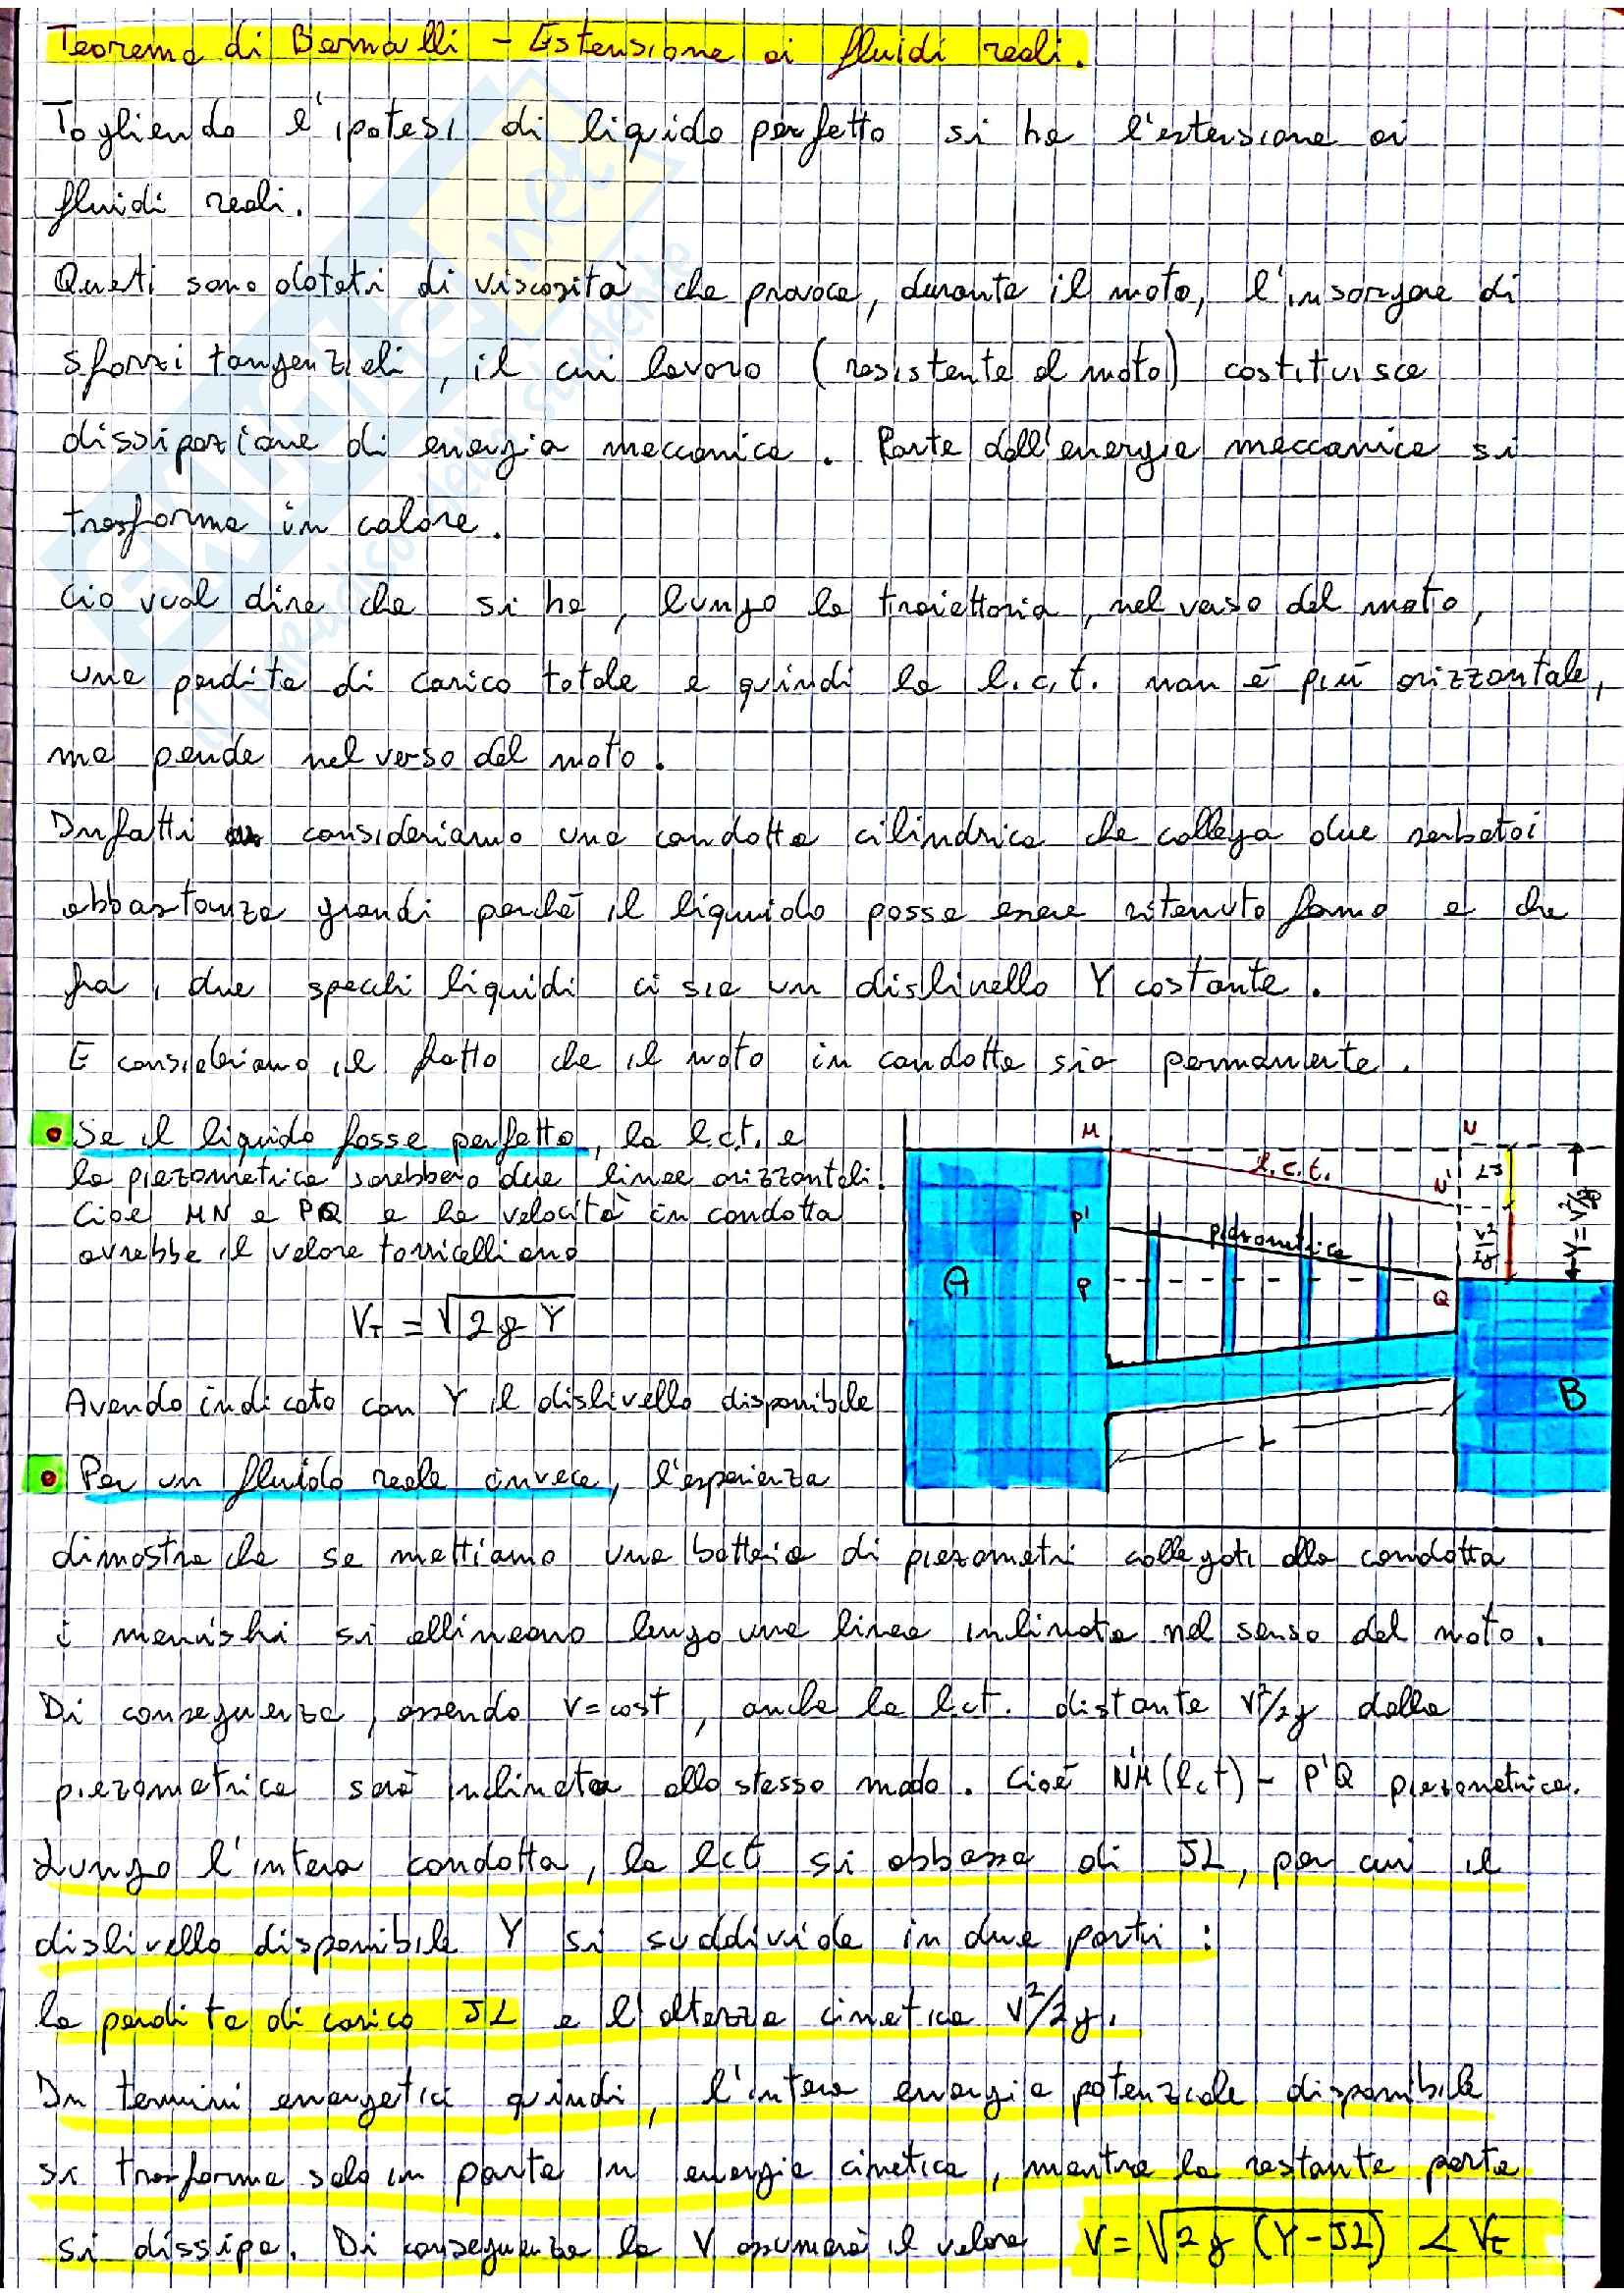 Teorema di Bernoulli - Estensione ai fluidi reali.
Togliendo l'ipotesi di liquido perfetto si ha l'estensione ai
fluidi reali.
Questi sono dotati di viscosità che provoca, durante il moto, l'insorgere di
sforzi tangenziali, il cui lavoro (resistente al moto) costituisce
dissipazione di energia meccanica. Parte dell'energia meccanica si
trasforma in calore.
Ciò vuol dire che si ha, lungo la traiettoria, nel verso del moto,
una perdita di carico totale e quindi la l.c.t. non è più orizzontale,
ma pende nel verso del moto.
Infatti consideriamo una condotta cilindrica che collega due serbatoi
abbastanza grandi perché il liquido possa essere ritenuto fermo e che
fra i due specchi liquidi ci sia un dislivello Y costante.
E consideriamo il fatto che il moto in condotta sia permanente.
• Se il liquido fosse perfetto, la l.c.t. e
la piezometrica sarebbero due linee orizzontali.
Cioè MN e PQ e la velocità in condotta
avrebbe il valore torricelliano
V_T = √2gY
Avendo indicato con Y il dislivello disponibile
M
N
l.c.t.
N'
LJ
P'
piezometrica
V²/2g
Y = V²/2g
A
P
Q
B
L
• Per un fluido reale invece, l'esperienza
dimostra che se mettiamo una batteria di piezometri collegati alla condotta
i menischi si allineano lungo una linea inclinata nel senso del moto.
Di conseguenza, essendo V=cost, anche la l.c.t. distante V²/2g dalla
piezometrica sarà inclinata allo stesso modo. Cioè N'M (lct) - P'Q piezometrica.
Lungo l'intera condotta, la lct si abbassa di JL, per cui il
dislivello disponibile Y si suddivide in due parti:
la perdita di carico JL e l'altezza cinetica V²/2g.
In termini energetici quindi, l'intera energia potenziale disponibile
si trasforma solo in parte in energia cinetica, mentre la restante parte
si dissipa. Di conseguenza la V assumerà il valore V = √2g (Y-JL) < V_T